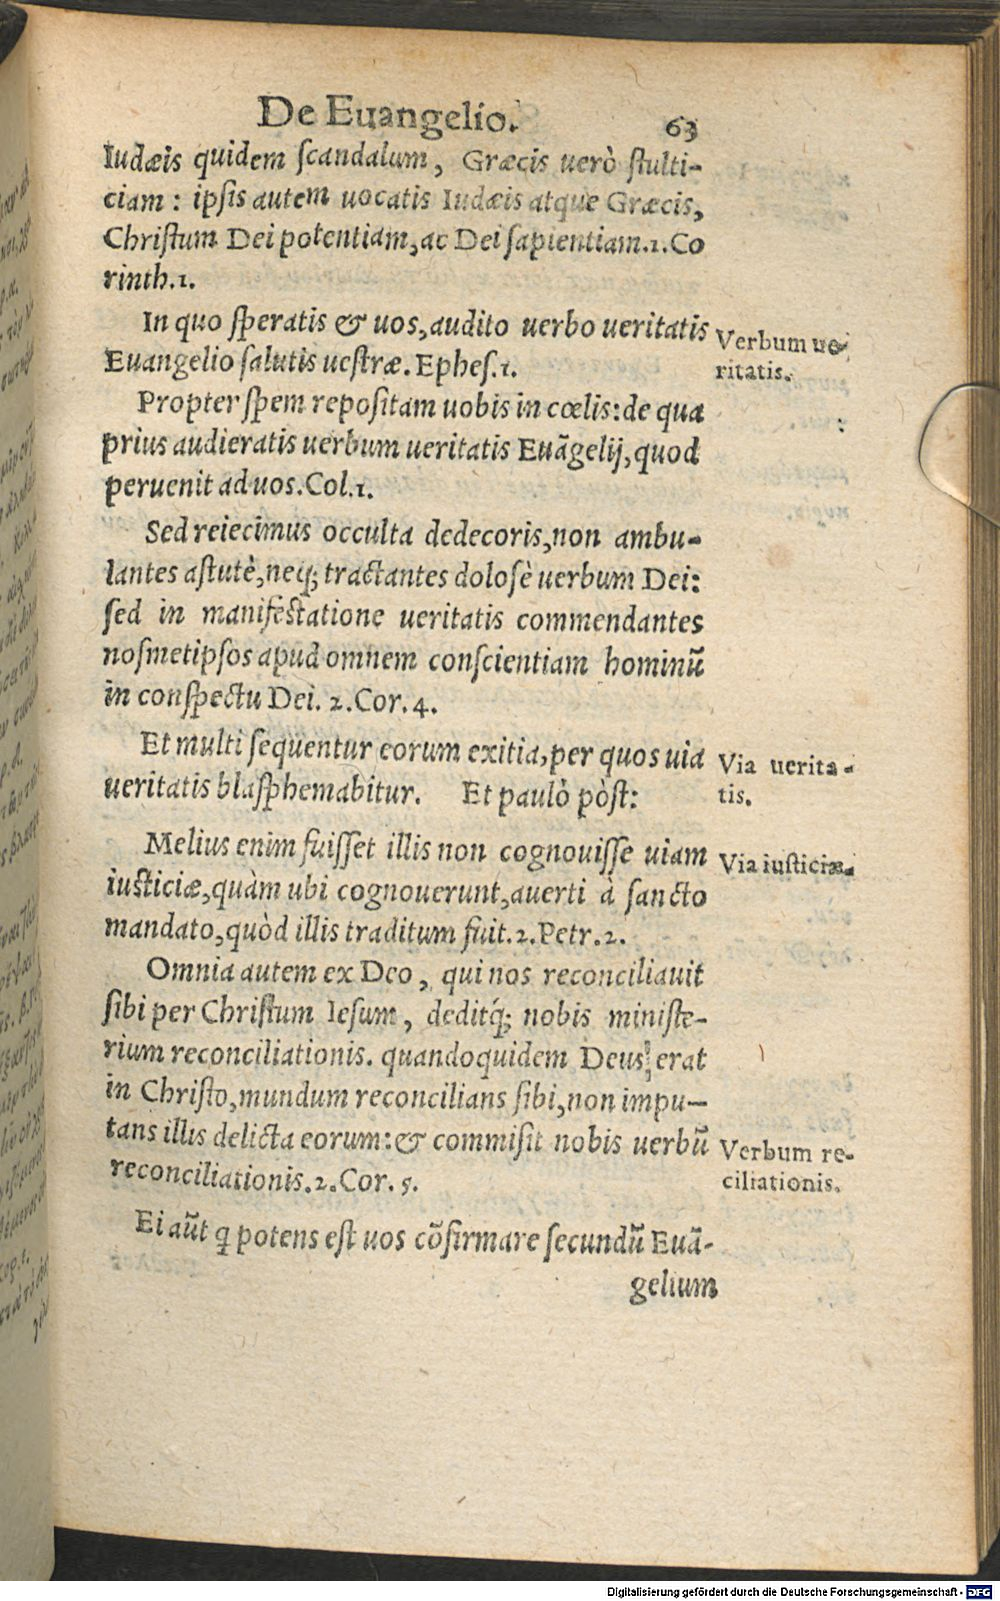 De Euangelio. 63
Iudæis quidem scandalum, Græcis uerò stulti-
ciam: ipsis autem uocatis Iudæis atque Græcis,
Christum Dei potentiam, ac Dei sapientiam. 1. Co
rinth. 1.
In quo speratis & uos, audito uerbo ueritatis
Verbum ue-
Euangelio salutis uestræ. Ephes. 1.
ritatis.
Propter spem repositam uobis in cœlis: de qua
prius audieratis uerbum ueritatis Euãgelij, quod
peruenit ad uos. Col. 1.
Sed reiecimus occulta dedecoris, non ambu-
lantes astutè, neq; tractantes dolosè uerbum Dei:
sed in manifestatione ueritatis commendantes
nosmetipsos apud omnem conscientiam hominũ
in conspectu Dei. 2. Cor. 4.
Et multi sequentur eorum exitia, per quos uia
Via uerita-
ueritatis blasphemabitur. Et paulò pòst:
tis.
Melius enim fuisset illis non cognouisse uiam
Via iusticiæ.
iusticiæ, quàm ubi cognouerunt, auerti à sancto
mandato, quòd illis traditum fuit. 2. Petr. 2.
Omnia autem ex Deo, qui nos reconciliauit
sibi per Christum Iesum, deditq́; nobis ministe-
rium reconciliationis. quandoquidem Deus erat
in Christo, mundum reconcilians sibi, non impu-
tans illis delicta eorum: & commisit nobis uerbũ
Verbum re-
reconciliationis. 2. Cor. 5.
ciliationis.
Ei aũt q potens est uos cõfirmare secundũ Euã-
gelium
Digitalisierung gefördert durch die Deutsche Forschungsgemeinschaft - DFG